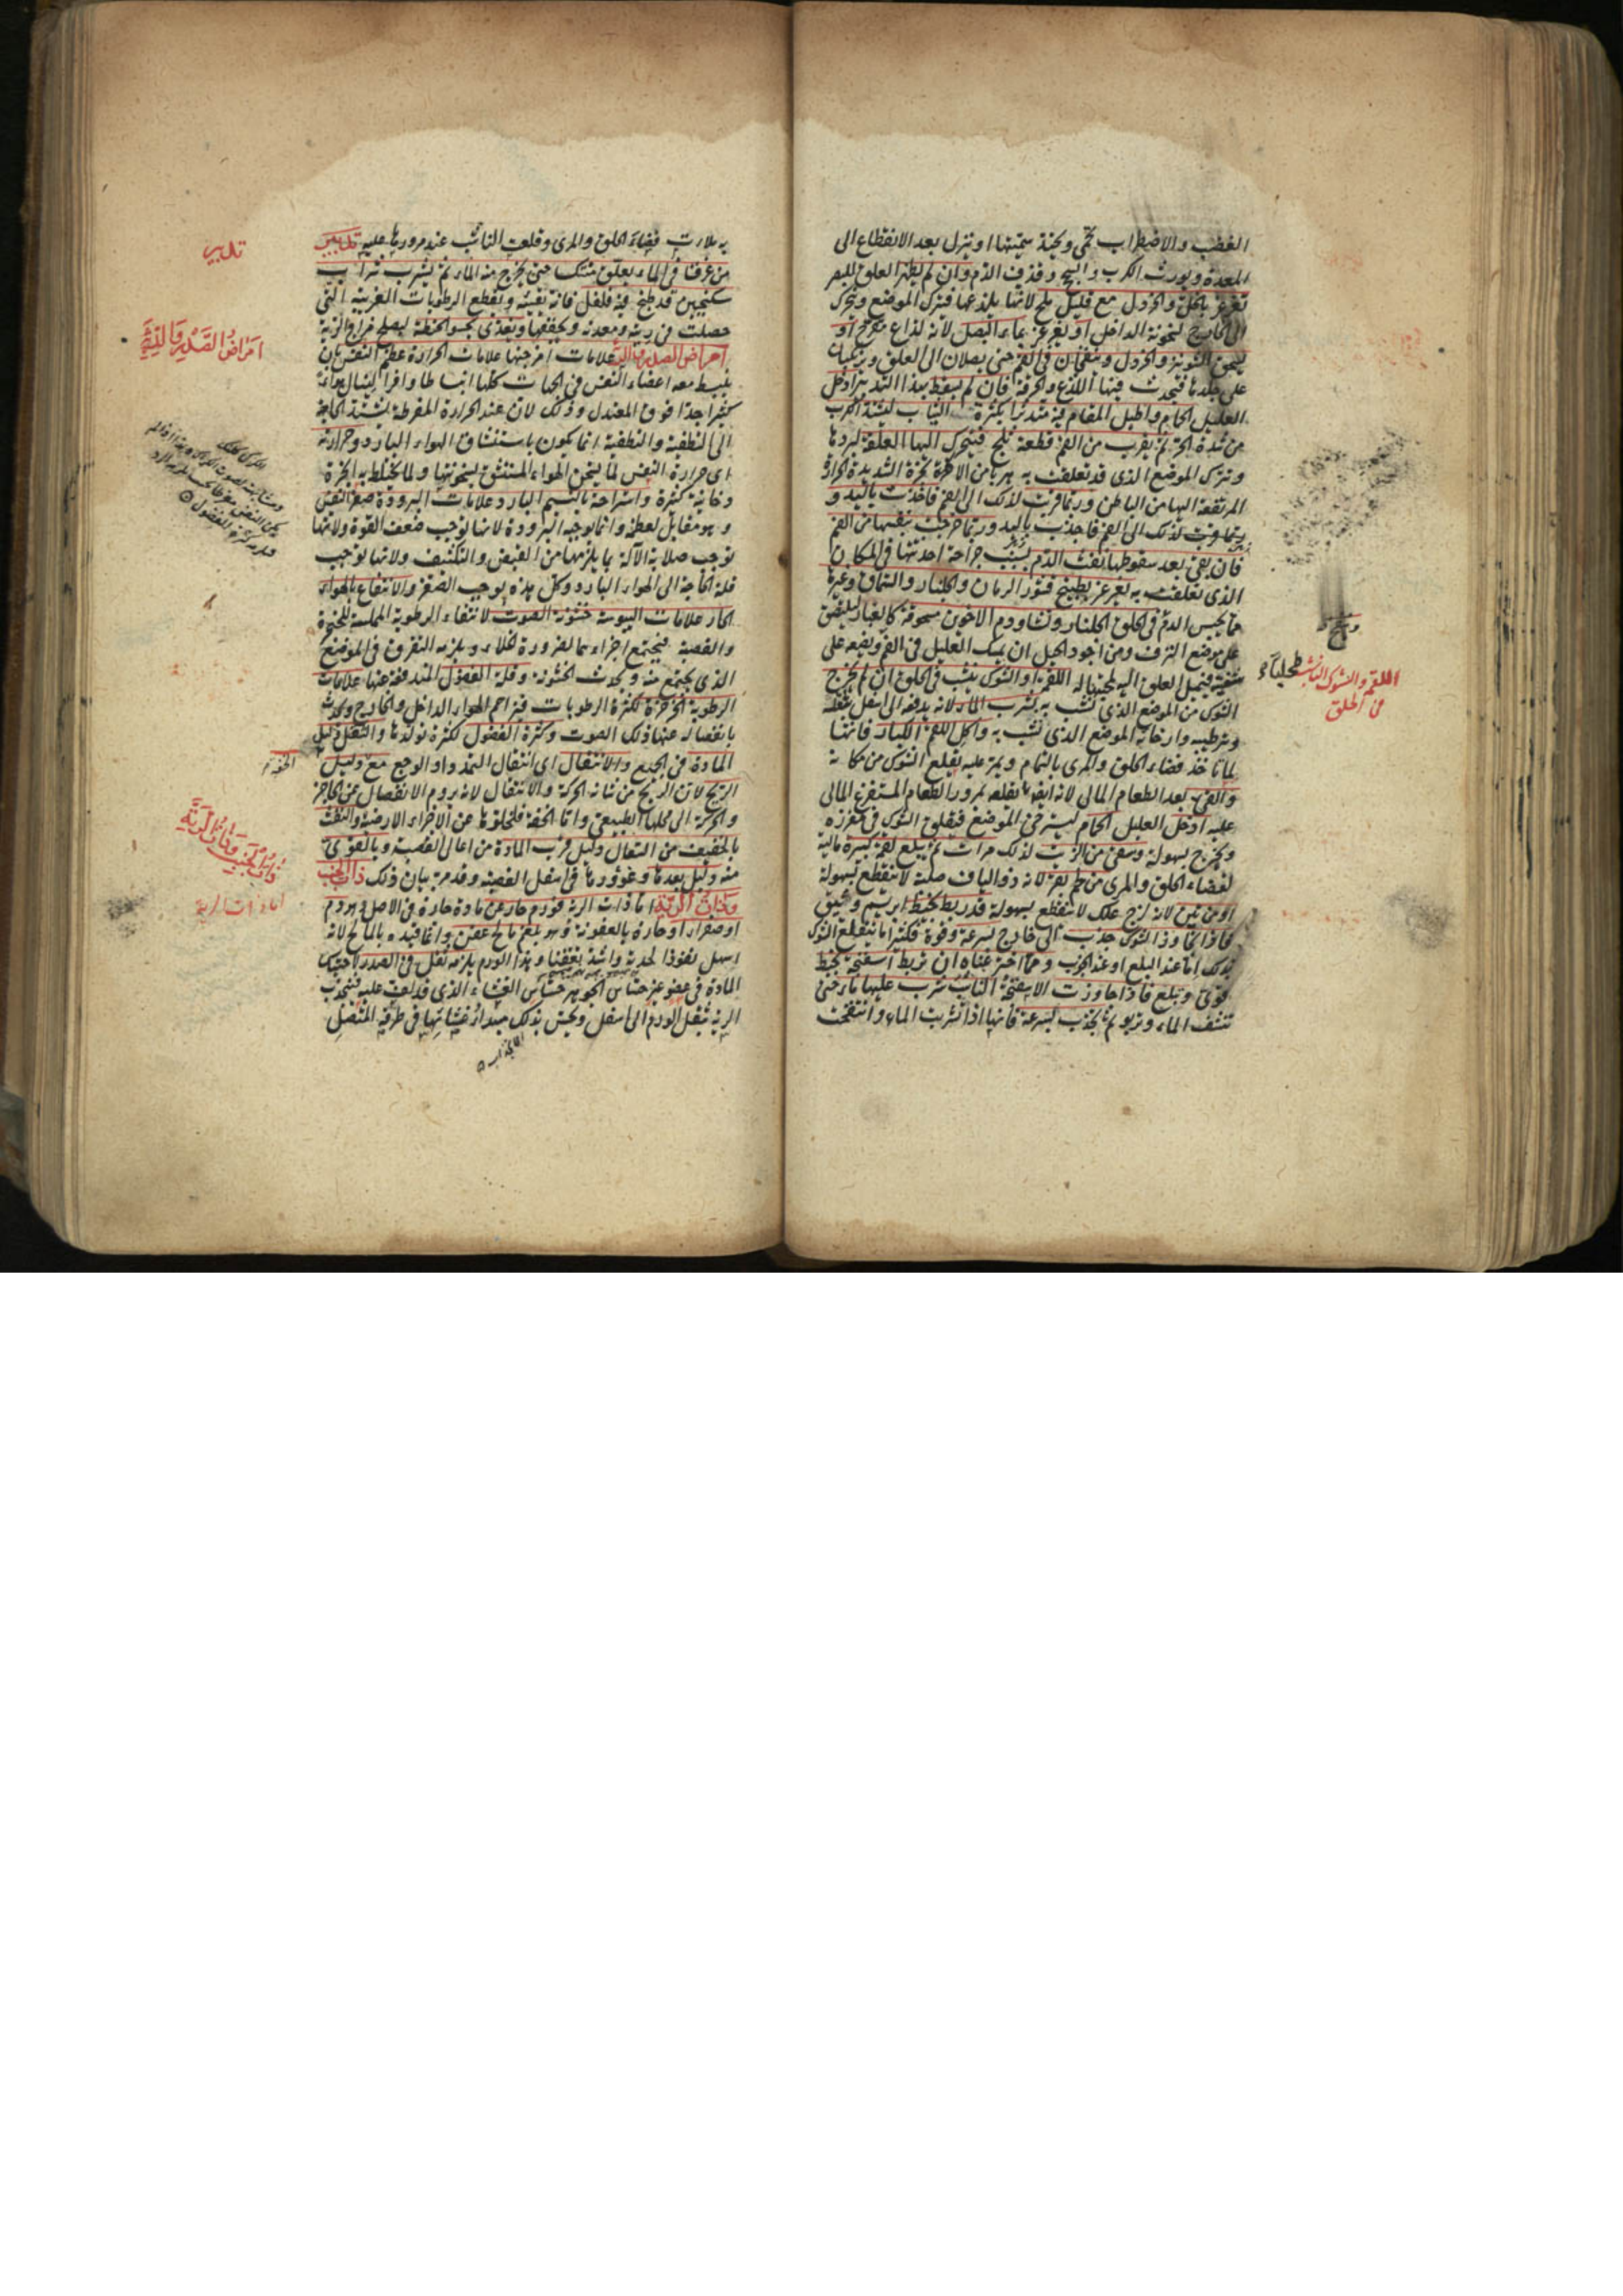 الغضب والاضطراب تحمى ويحنة سميتها او تنزل بعد الانقطاع الى
المعدة ويورث الكرب والسحج وقذف الدم وان لم يظهر العلق للبصر
تغرغر بالخل والخردل مع قليل ملح لانها يلذعها فيترك الموضع ويتحرك
الى الخارج لسخونة الداخل او يغرغر بماء البصل لانه لذاع مقرح او
يسحق الشونيز والخردل وينفخان في الفم حتى يصلان الى العلق ويركبان
على جلدها فيحدث فيها اللذع والحرقة فان لم يسقط بهذا التدبير ادخل
العليل الحمام واطيل المقام فيه متدثرا بكثرة الثياب ليشتد الكرب
من شدة الحر ثم يقرب من الفم قطعة ثلج فيتحرك اليها العلقة لبردها
ويترك الموضع الذى قد تعلقت به هربا من الابخرة الشديدة الحرارة
المرتفعة اليها من الباطن وربما قربت لذلك الى الفم فاخذت باليد و
ربما قربت لذلك الى الفم فاخذت باليد وربما خرجت بنفسها من الفم
فان بقى بعد سقوطها نفث الدم بسبب جراحة احدثتها في المكان
الذى تعلقت به يغرغر بطبيخ قشور الرمان والجلنار والسماق وغيرها
مما يحبس الدم في الحلق الجلنار ونشا ودم الاخوين مسحوقة كالغبار ليلتصق
على موضع النزف ومن اجود الحيل ان يمسك العليل في الفم ويضعه على
شفتيه فيميل العلق اليه لمحبتها له اللقمة او الشوك ينشب في الحلق ان لم يخرج
الشوك من الموضع الذى نشب به بشرب الماء لانه يدفعه الى اسفل بثقله
وترطيبه وارخائه الموضع الذى نشب به واكل اللقم الكبار فانها
لما تاخذ فضاء الحلق والمرى بالتمام ويمر عليه يقلع الشوك من مكانه
والقى بعد الطعام المالى لانه ايضا يقلعه لمرور الطعام المستفرغ المالى
عليه ادخل العليل الحمام ليسترخى الموضع فيقلق الشوك في مغرزه
ويخرج بسهولة وسقى من الزيت لذلك مرات ثم يبلع لقمة كبيرة مالية
لفضاء الحلق والمرى من لحم بقر لانه ذو الياف صلبة لا ينقطع بسهولة
او من تين لانه لزج علك لا ينقطع بسهولة قد ربط بخيط ابريسم وثيق
فاذا تجاوز الشوك جذب الى خارج بسرعة وقوة فكثيرا ما ينقلع الشوك
بذلك اما عند البلع او عند الجذب ومما اخترعناه ان يربط اسفنجة بخيط
قوى ويبلع فاذا جاوزت الاسفنجة الناشب شرب عليها ماء حتى
تنشف الماء وتربو ثم يجذب بسرعة فانها اذا تشربت الماء وانتفخت
اللقمة والشوك الناشب
في الحلق
به ملأت فضاء الحلق والمرى وقلعت الناشب عند مرورها عليه تدبير
من غرق في الماء يعلق منتكسا حتى يخرج منه الماء ثم يشرب شراب
سكنجبين قد طبخ فيه فلفل فانه تقيئه ويقطع الرطوبات الغريبة التى
حصلت في ريته ومعدته ويجففها ويغذى بحسو الحنطة ليصلح مزاج الرية
امراض الصدر والرية علامات امزجتها علامات الحرارة عظم النفس بان
ينبسط معه اعضاء النفس في الجهات كلها انبساطا وافرا لينال هواء
كثيرا جدا فوق المعتدل وذلك لان عند الحرارة المفرطة يشتد الحاجة
الى التطفية والتطفية انما يكون باستنشاق الهواء البارد وحرارته
اى حرارة النفس لما يسخن الهواء المستنشق بسخونتها ولما يختلط به ابخرة
دخانية كثيرة واستراحة بالنسيم البارد وعلامات البرودة صغر النفس
وهو مقابل لعظمه وانما يوجبه البرودة لانها يوجب ضعف القوة ولانها
توجب صلابة الآلة بما يلزمها من القبض والتكثيف ولانها توجب
قلة الحاجة الى الهواء البارد وكل هذه يوجب الصغر والانتفاع بالهواء
الحار علامات اليبوسة خشونة الصوت لانتفاء الرطوبة المملسة للحنجرة
والقصبة فيجتمع اجزاءهما لضرورة الخلاء ويلزمه التفرق في الموضع
الذى يجتمع منه ويحدث الخشونة وقلة الفضول المتدفقة عنها علامات
الرطوبة الخرخرة لكثرة الرطوبات فيزاحم الهواء الداخل والخارج ويحدث
بانفصاله عنها ذلك الصوت وكثرة الفضول لكثرة تولدها والثقل دليل
المادة في الجميع والانتقال اى انتقال التمدد او الوجع مع دليل
الريح لان الريح من شانه الحركة والانتقال لانه يروم الانفصال عن الحاجز
والحركة الى محلها الطبيعى واما الخفة فلخلوها عن الاجزاء الارضية والنفث
بالخفيف من السعال دليل قرب المادة من اعالى القصبة وبالقوى
منه دليل بعدها وغؤورها في اسفل القصبة وقد مر بيان ذلك ذات الجنب
وذات الرية اما ذات الرية فورم حار عن مادة حارة في الاصل وهو دم
او صفراء او حارة بالعفونة وهو بلغم مالح عفن وانما قيده بالمالح لانه
اسهل نفوذا لحدته وانه تعفنا وهذا الورم يلزمه ثقل في الصدر لاحتباس
المادة في عضو غير حساس الجوهر حساس الغشاء الذى قد لف عليه فينجذب
الرية بثقل الورم الى اسفل ويحس بذلك مبدأ غشائها في طرفه المتصل
الانجذاب
تدبير
امراض الصدر والرية
الخفة
ذات الجنب وذات الرية
اما ذات الرية